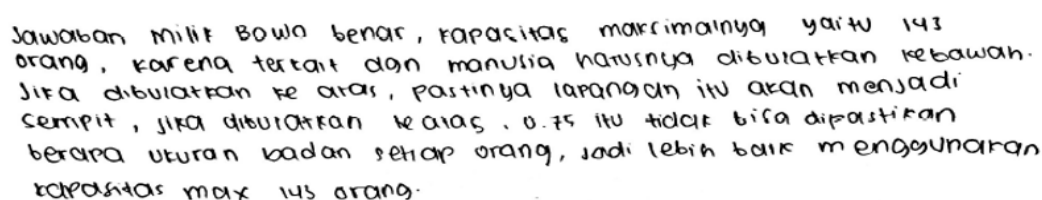 Jawaban milik Bowo benar, kapasitas maksimalnya yaitu 143
orang, karena terkait dgn manusia harusnya dibulatkan kebawah.
Jika dibulatkan ke atas, pastinya lapangan itu akan menjadi
sempit, jika dibulatkan ke atas, 0.75 itu tidak bisa dipastikan
berapa ukuran badan setiap orang, jadi lebih baik menggunakan
kapasitas max 143 orang.